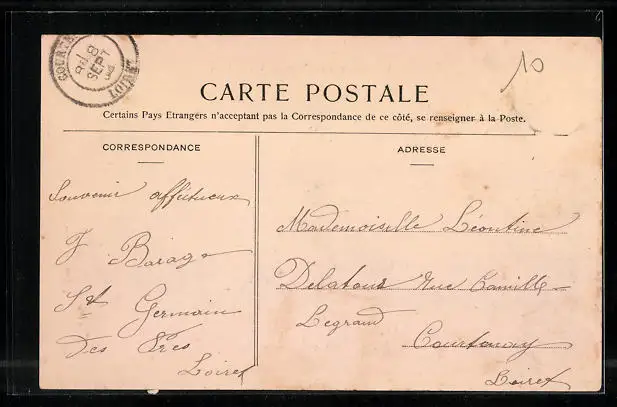 COURTE
8
SEPT
LOIRET
10
CARTE POSTALE
Certains Pays Etrangers n'acceptant pas la Correspondance de ce côté, se renseigner à la Poste.
CORRESPONDANCE
Souvenir affectueux
J Barage
St Germain
des Prés
Loiret
ADRESSE
Mademoiselle Léontine
Delatour Rue Camille
Legrand
Courtenay
Loiret